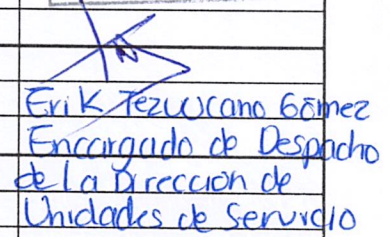 Erik Tezucano Gómez
Encargado de Despacho
de la Dirección de
Unidades de Servicio